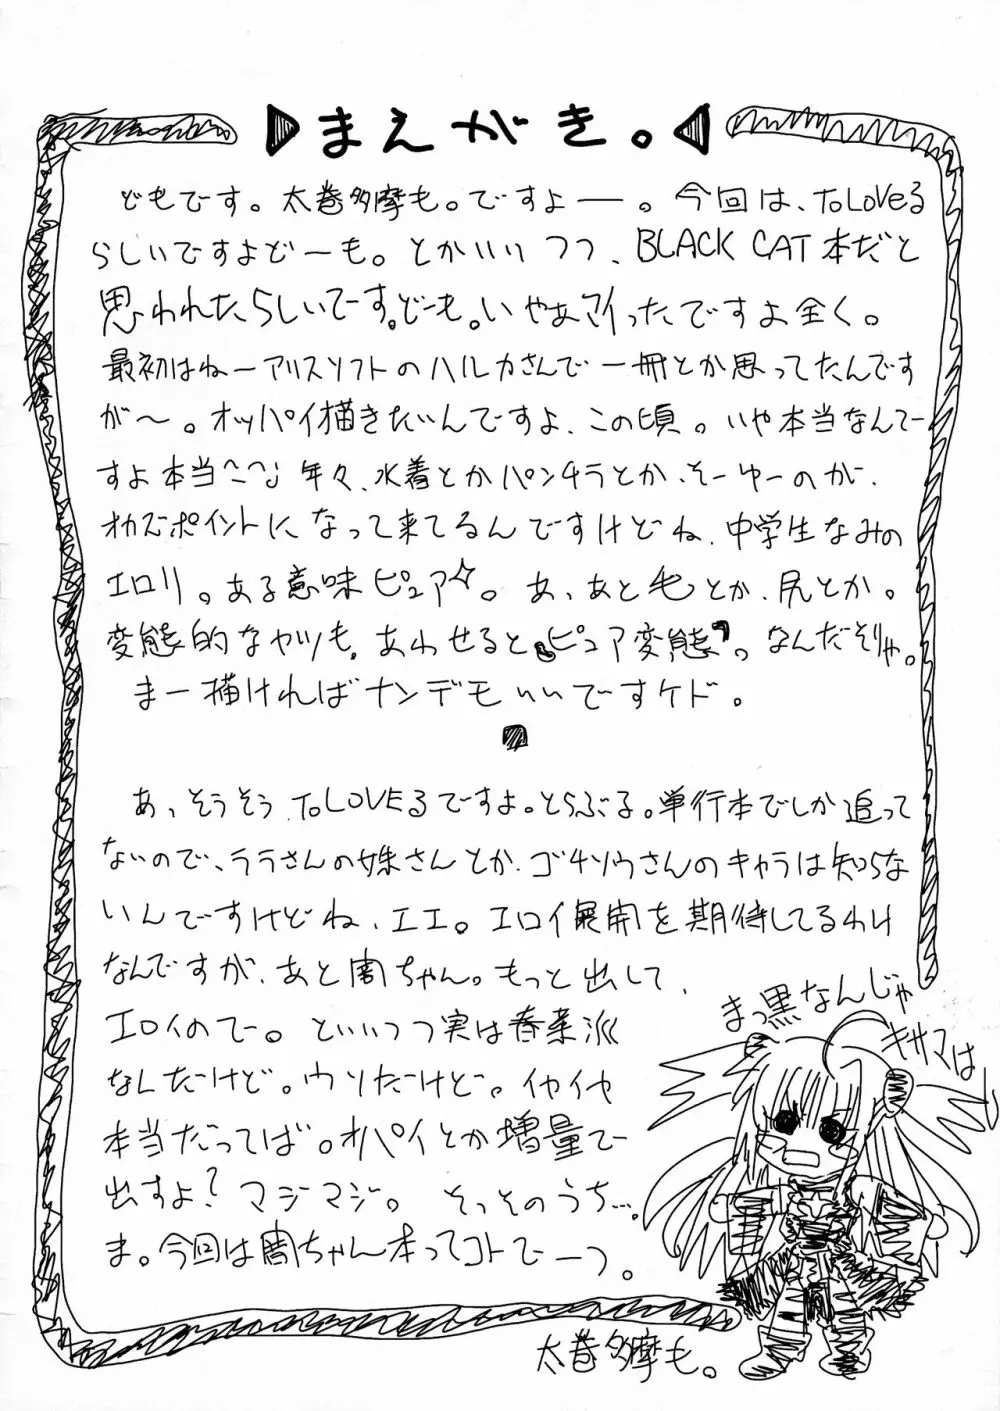 まえがき。
どもです。太巻多摩も。ですよー。今回は、ToLOVEる
らしいですよどーも。とかいいつつ、BLACK CAT本だと
思われたらしいでーす。どーも。いやあマイったですよ全く。
最初はねーアリスソフトのハルカさんで一冊とか思ってたんです
が〜。オッパイ描きたいんですよ、この頃。いや本当なんでー
すよ本当^^;年々、水着とかパンチラとか、そーゆーのが、
オカズポイントになって来てるんですけどね、中学生なみの
エロリ。ある意味ピュア☆。あ、あと毛とか、尻とか。
変態的なヤツも。あわせると“ピュア変態”。なんだそりゃ。
まー描ければナンデモいいですケド。
あ、そうそう、ToLOVEるですよ。とらぶる。単行本でしか追って
ないので、ララさんの妹さんとか、ゴチソウさんのキャラは知らな
いんですけどね、エエ。エロイ展開を期待してるわけ
なんですが、あと闇ちゃん。もっと出して、
エロイのでー。といいつつ実は春菜派
なんだけど。ウソだけど。イヤイヤ
本当だってば。オパイとか増量で
出すよ?マジマジ。そっそのうち…。
ま。今回は闇ちゃん本ってコトでーつ。
まっ黒なんじゃ
キサマは
太巻多摩も。